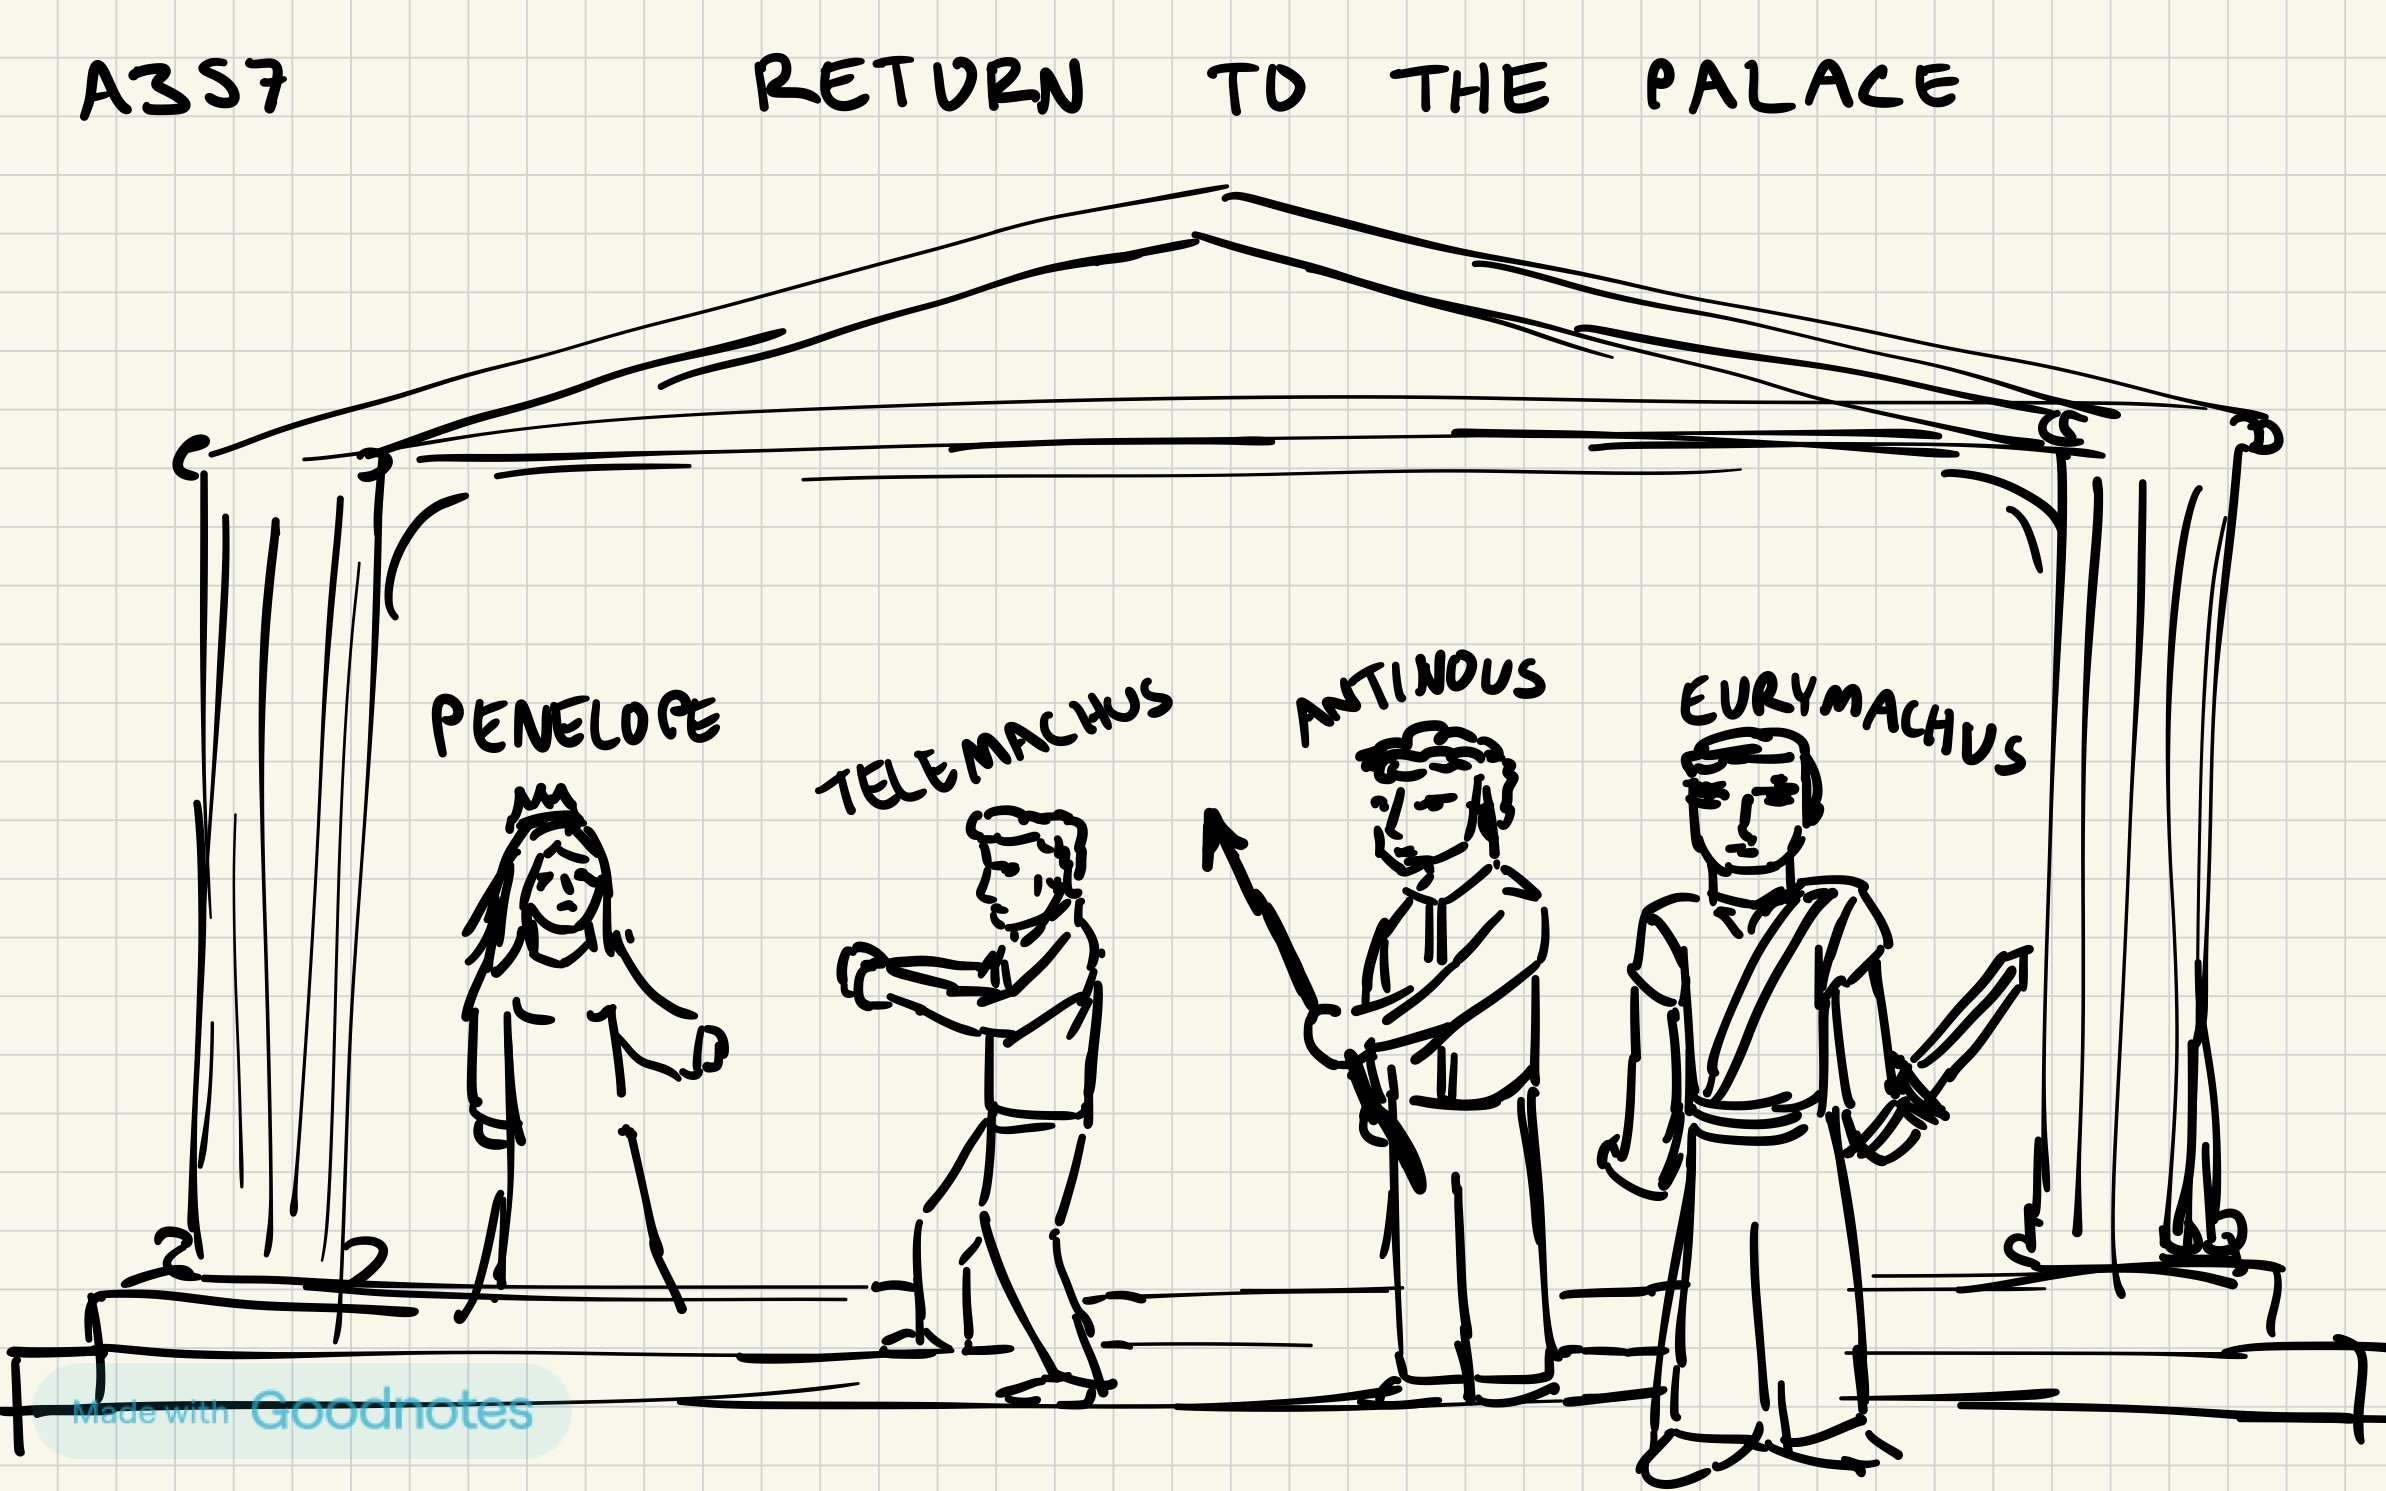 A3S7 RETURN TO THE PALACE
PENELOPE
TELEMACHUS
ANTINOUS
EURYMACHUS
Made with Goodnotes